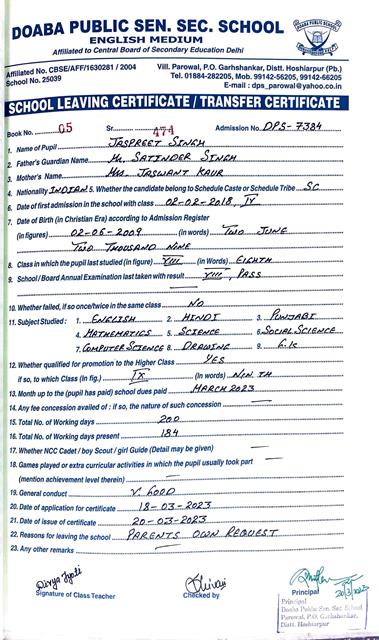 DOABA PUBLIC SEN. SEC. SCHOOL
ENGLISH MEDIUM
Affiliated to Central Board of Secondary Education Delhi
Affiliated No. CBSE/AFF/1630281 / 2004
School No. 25039
Vill. Parowal, P.O. Garhshankar, Distt. Hoshiarpur (Pb.)
Tel. 01884-282205, Mob. 99142-56205, 99142-66205
E-mail : dps_parowal@yahoo.co.in
SCHOOL LEAVING CERTIFICATE / TRANSFER CERTIFICATE
Book No. 05 Sr. 474 Admission No. DPS-7384
1. Name of Pupil JASPREET SINGH
2. Father's Guardian Name Mr. SATINDER SINGH
3. Mother's Name Mrs. JASWANT KAUR
4. Nationality INDIAN 5. Whether the candidate belong to Schedule Caste or Schedule Tribe SC
6. Date of first admission in the school with class 02-02-2018, IV
7. Date of Birth (in Christian Era) according to Admission Register
(in figures) 02-06-2009 (in words) TWO JUNE
TWO THOUSAND NINE
8. Class in which the pupil last studied (in figure) VIII (in Words) EIGHTH
9. School / Board Annual Examination last taken with result VIII, PASS
10. Whether failed, if so once/twice in the same class NO
11. Subject Studied : 1. ENGLISH 2. HINDI 3. PUNJABI
4. MATHEMATICS 5. SCIENCE 6. SOCIAL SCIENCE
7. COMPUTER SCIENCE 8. DRAWING 9. G.K
12. Whether qualified for promotion to the Higher Class YES
if so, to which Class (In fig.) IX (In words) NINTH
13. Month up to the (pupil has paid) school dues paid MARCH 2023
14. Any fee concession availed of : if so, the nature of such concession
15. Total No. of Working days 200
16. Total No. of Working days present 184
17. Whether NCC Cadet / boy Scout / girl Guide (Detail may be given)
18. Games played or extra curricular activities in which the pupil usually took part
(mention achievement level therein)
19. General conduct V. GOOD
20. Date of application for certificate 18-03-2023
21. Date of issue of certificate 20-03-2023
22. Reasons for leaving the school PARENTS OWN REQUEST
23. Any other remarks
Divya Jyoti
Signature of Class Teacher
Shivani
Checked by
20/3/2023
Principal
Principal
Doaba Public Sen. Sec. School
Parowal, P.O. Garhshankar,
Distt. Hoshiarpur